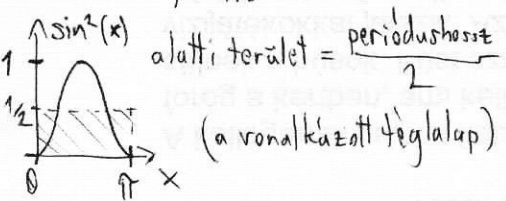 sin²(x)
alatti terület = periódushossz / 2
1
1/2
(a vonalkázott téglalap)
0 π x